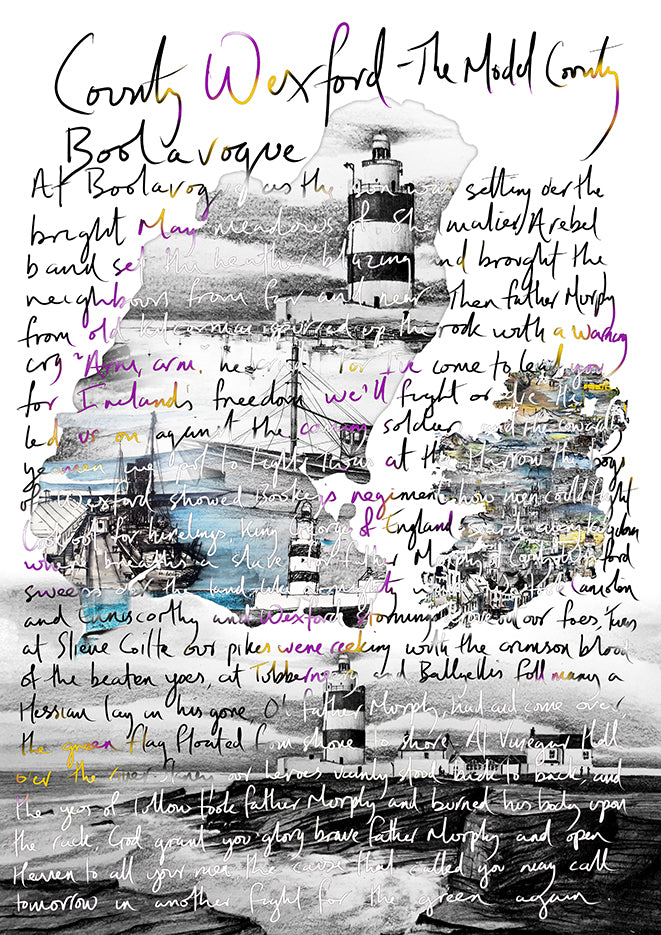 County Wexford - The Model County
Boolavogue
At Boolavogue as the sun was setting o'er the
bright May meadows of Shelmalier, A rebel
band set the heather blazing and brought the
neighbours from far and near Then father Murphy
from old Kilcormac spurred up the rock with a warning
cry "Arm, arm. he cried For I've come to lead you
for Ireland's freedom we'll fight or die. He
led us on against the coming soldier and the cowardly
yeomen we put to flight Twas at the Harrow the boys
of Wexford showed Bookey's regiment how men could fight
Lookout for hirelings, King George of England search every kingdom
where breaths a slave For father Murphy of County Wexford
sweeps o'er the land like a mighty wave we took Camolin
and Enniscorthy and Wexford storming drove out our foes, Twas
at Slieve Coilte our pikes were reeking with the crimson blood
of the beaten yeos, at Tubberneering and Ballyellis full many a
Hessian lay in his gore, O', father Murphy, had aid come over,
the green flag floated from shore to shore At Vinegar Hill
o'er the our heroes vainly stood back to back, and
the yeos of Tullow took father Murphy and burned his body upon
the rack, God grant you glory brave father Murphy and open
Heaven to all your men the cause that called you may call
tomorrow in another fight for the green again.